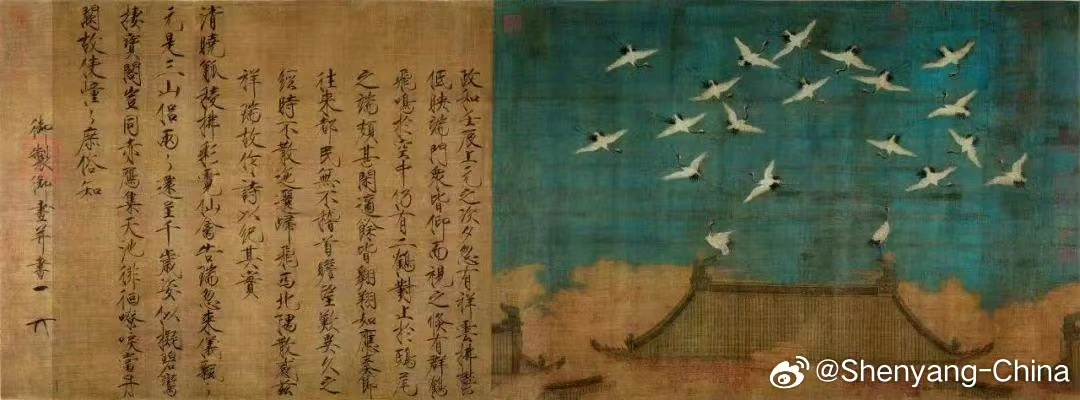 政和壬辰上元之次夕忽有祥雲拂鬱
低映端門衆皆仰而視之倏有群鶴
飛鳴於空中仍有二鶴對止於鴟尾
之端頗甚閑適餘皆翱翔如應奏節
往來都民無不稽首瞻望歎異久之
經時不散迤邐歸飛西北隅散感茲
祥瑞故作詩以紀其實
清曉觚稜拂彩霓仙禽告瑞忽來儀飄々
元是三山侶兩々還呈千歲姿似擬碧鸞
棲寶閣豈同赤鴈集天池徘徊嘹唳當丹
闕故使憧々庶俗知
御製御畫并書
@Shenyang-China